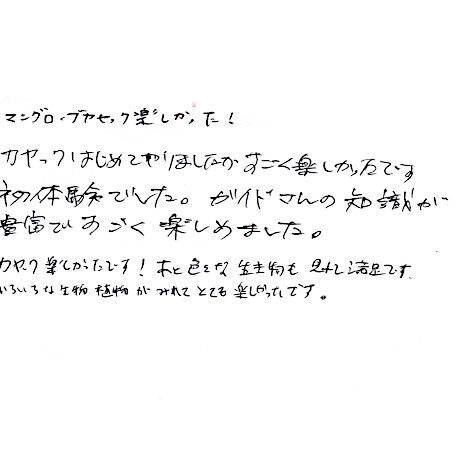 マングローブカヤック楽しかった!
カヤックはじめてやりましたがすごく楽しかったです
初体験でした。ガイドさんの知識が
豊富ですごく楽しめました。
カヤック楽しかったです!あと色々な生き物も見れて満足です
いろいろな生物植物がみれてとても楽しかったです。